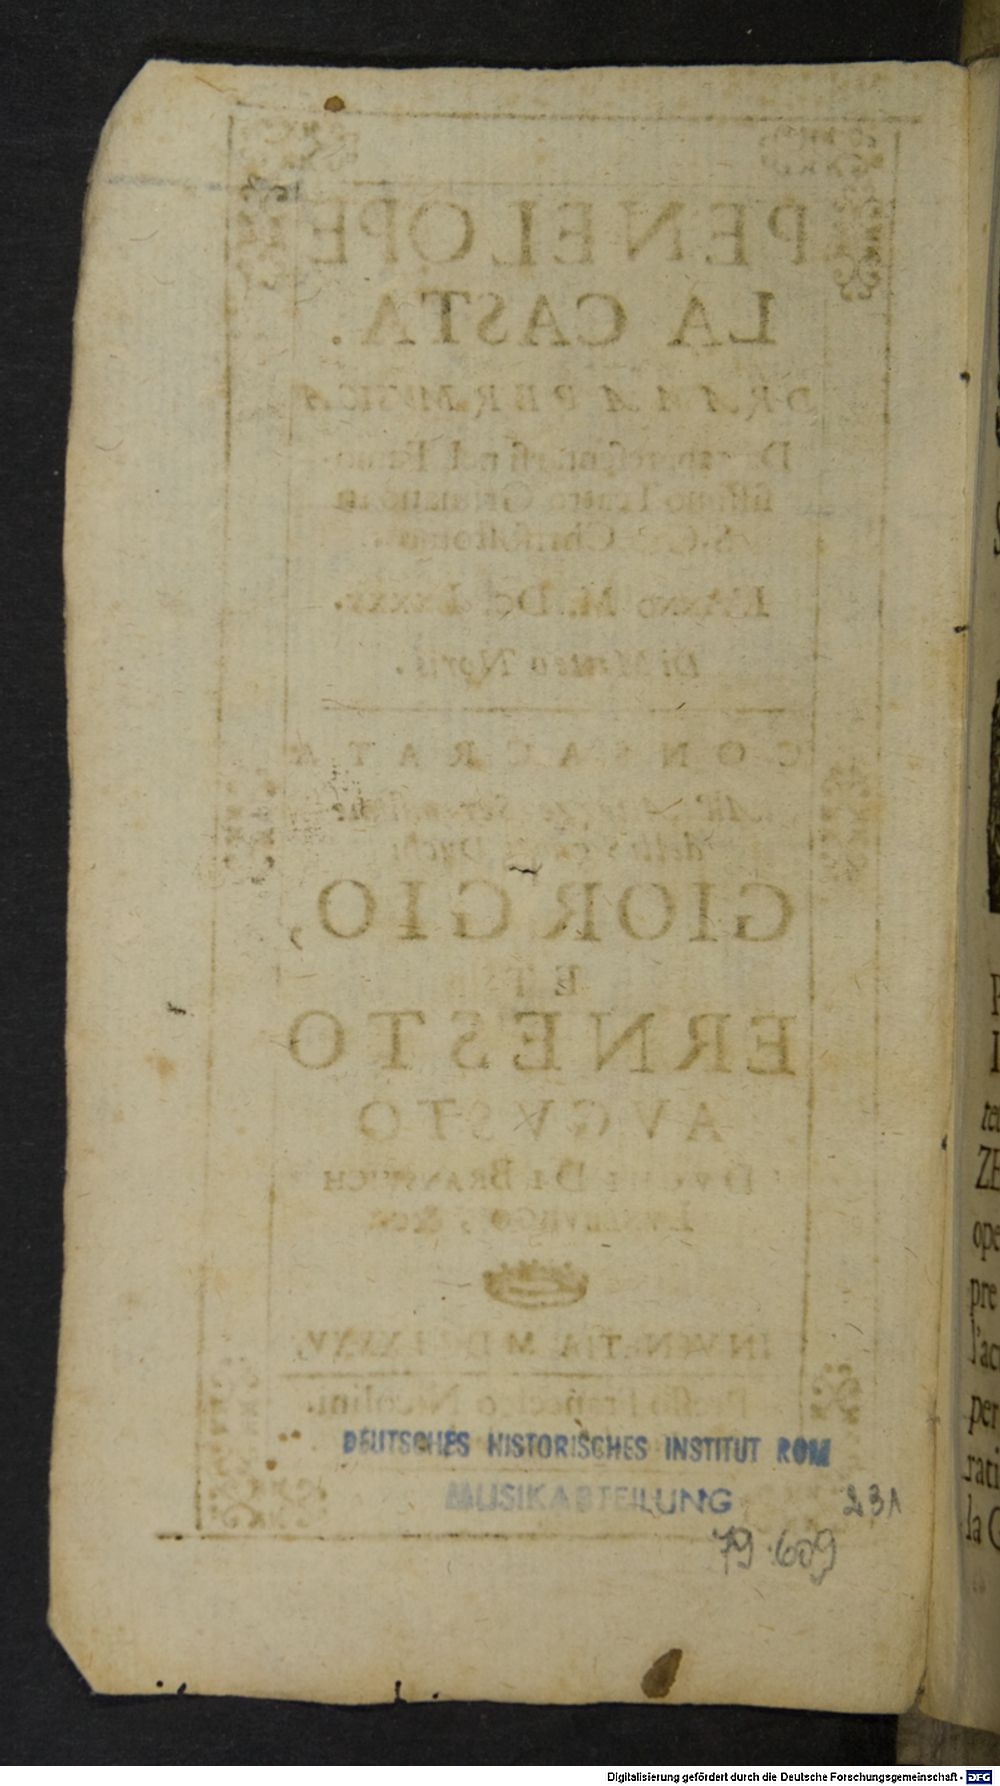 PENELOPE
LA CASTA.
DRAMA PER MUSICA
nel Famo-
sissimo Teatro Grimano in
S. Chrisostomo.
L'Anno M. DC. LXXXV.
Di Matteo Noris.
CONSACRATA
All'Altezze Serenissime
delli Duchi
GIORGIO,
ET
ERNESTO
AVGVSTO
DVCHI DI BRANSVICH
LVNEBVRGO, &c.
IN VENETIA M DC LXXXV.
Presso Francesco Nicolini.
DEUTSCHES HISTORISCHES INSTITUT ROM
MUSIKABTEILUNG
231
79.609
ZE
ope
pre
l'ac
per
rati
la
Digitalisierung gefördert durch die Deutsche Forschungsgemeinschaft - DFG